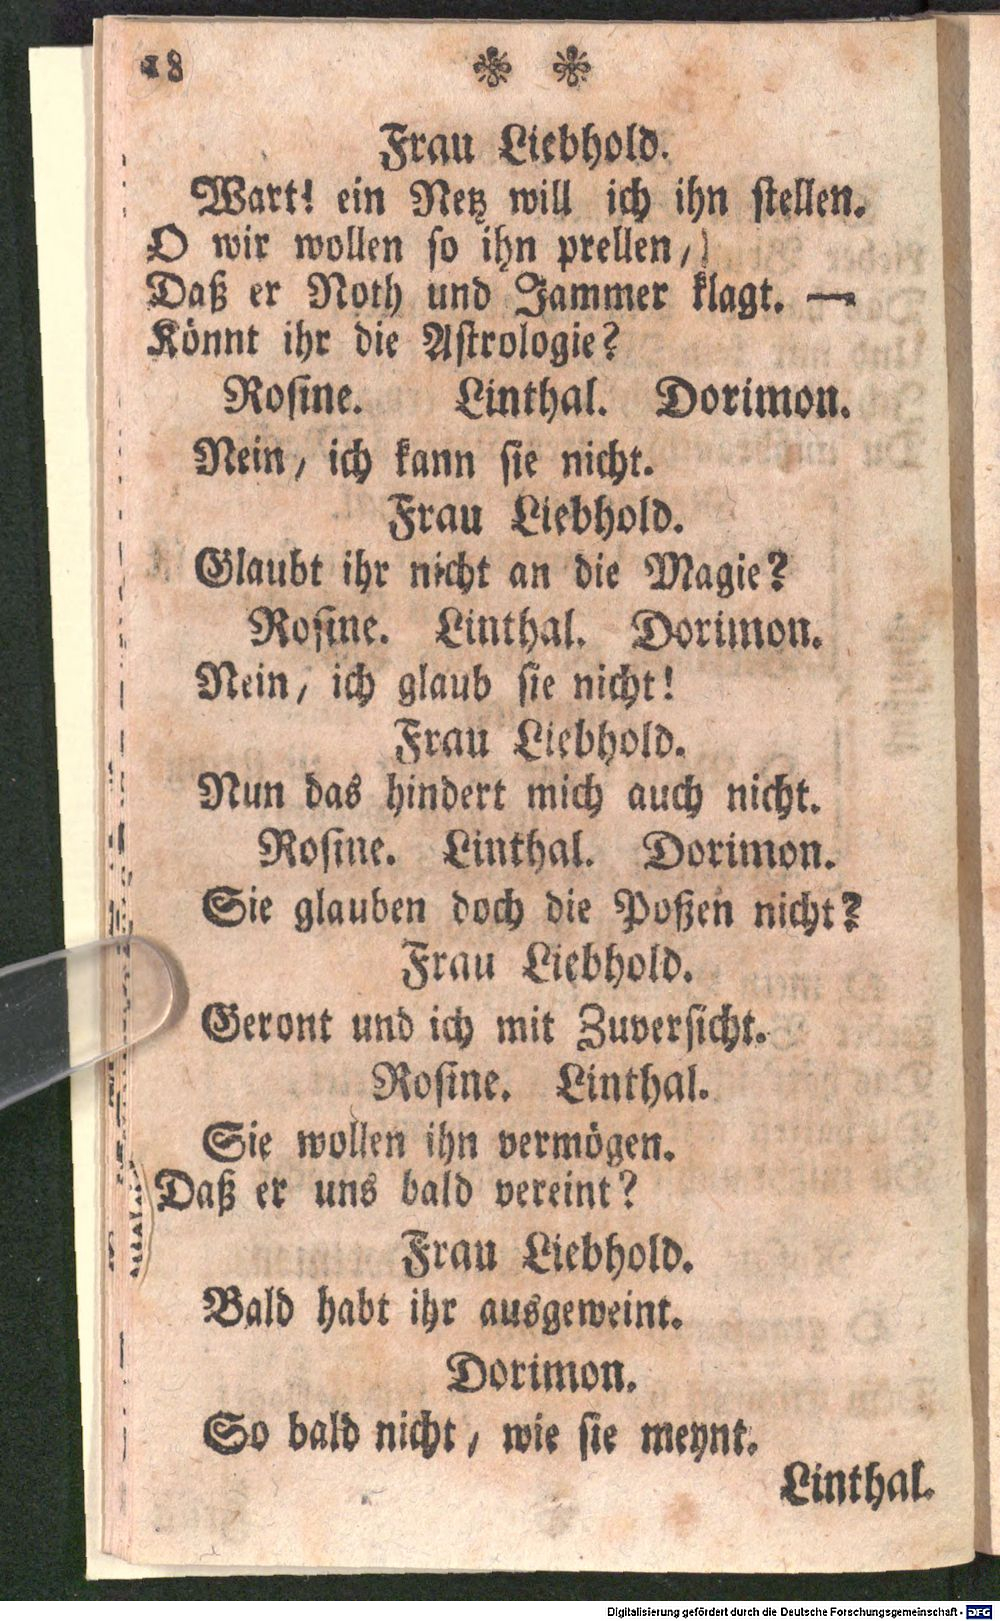 18
Frau Liebhold.
Wart! ein Netz will ich ihn stellen.
O wir wollen so ihn prellen,
Daß er Noth und Jammer klagt. —
Könnt ihr die Astrologie?
Rosine. Linthal. Dorimon.
Nein, ich kann sie nicht.
Frau Liebhold.
Glaubt ihr nicht an die Magie?
Rosine. Linthal. Dorimon.
Nein, ich glaub sie nicht!
Frau Liebhold.
Nun das hindert mich auch nicht.
Rosine. Linthal. Dorimon.
Sie glauben doch die Poßen nicht?
Frau Liebhold.
Geront und ich mit Zuversicht.
Rosine. Linthal.
Sie wollen ihn vermögen.
Daß er uns bald vereint?
Frau Liebhold.
Bald habt ihr ausgeweint.
Dorimon.
So bald nicht, wie sie meynt.
Linthal.
Digitalisierung gefördert durch die Deutsche Forschungsgemeinschaft - DFG